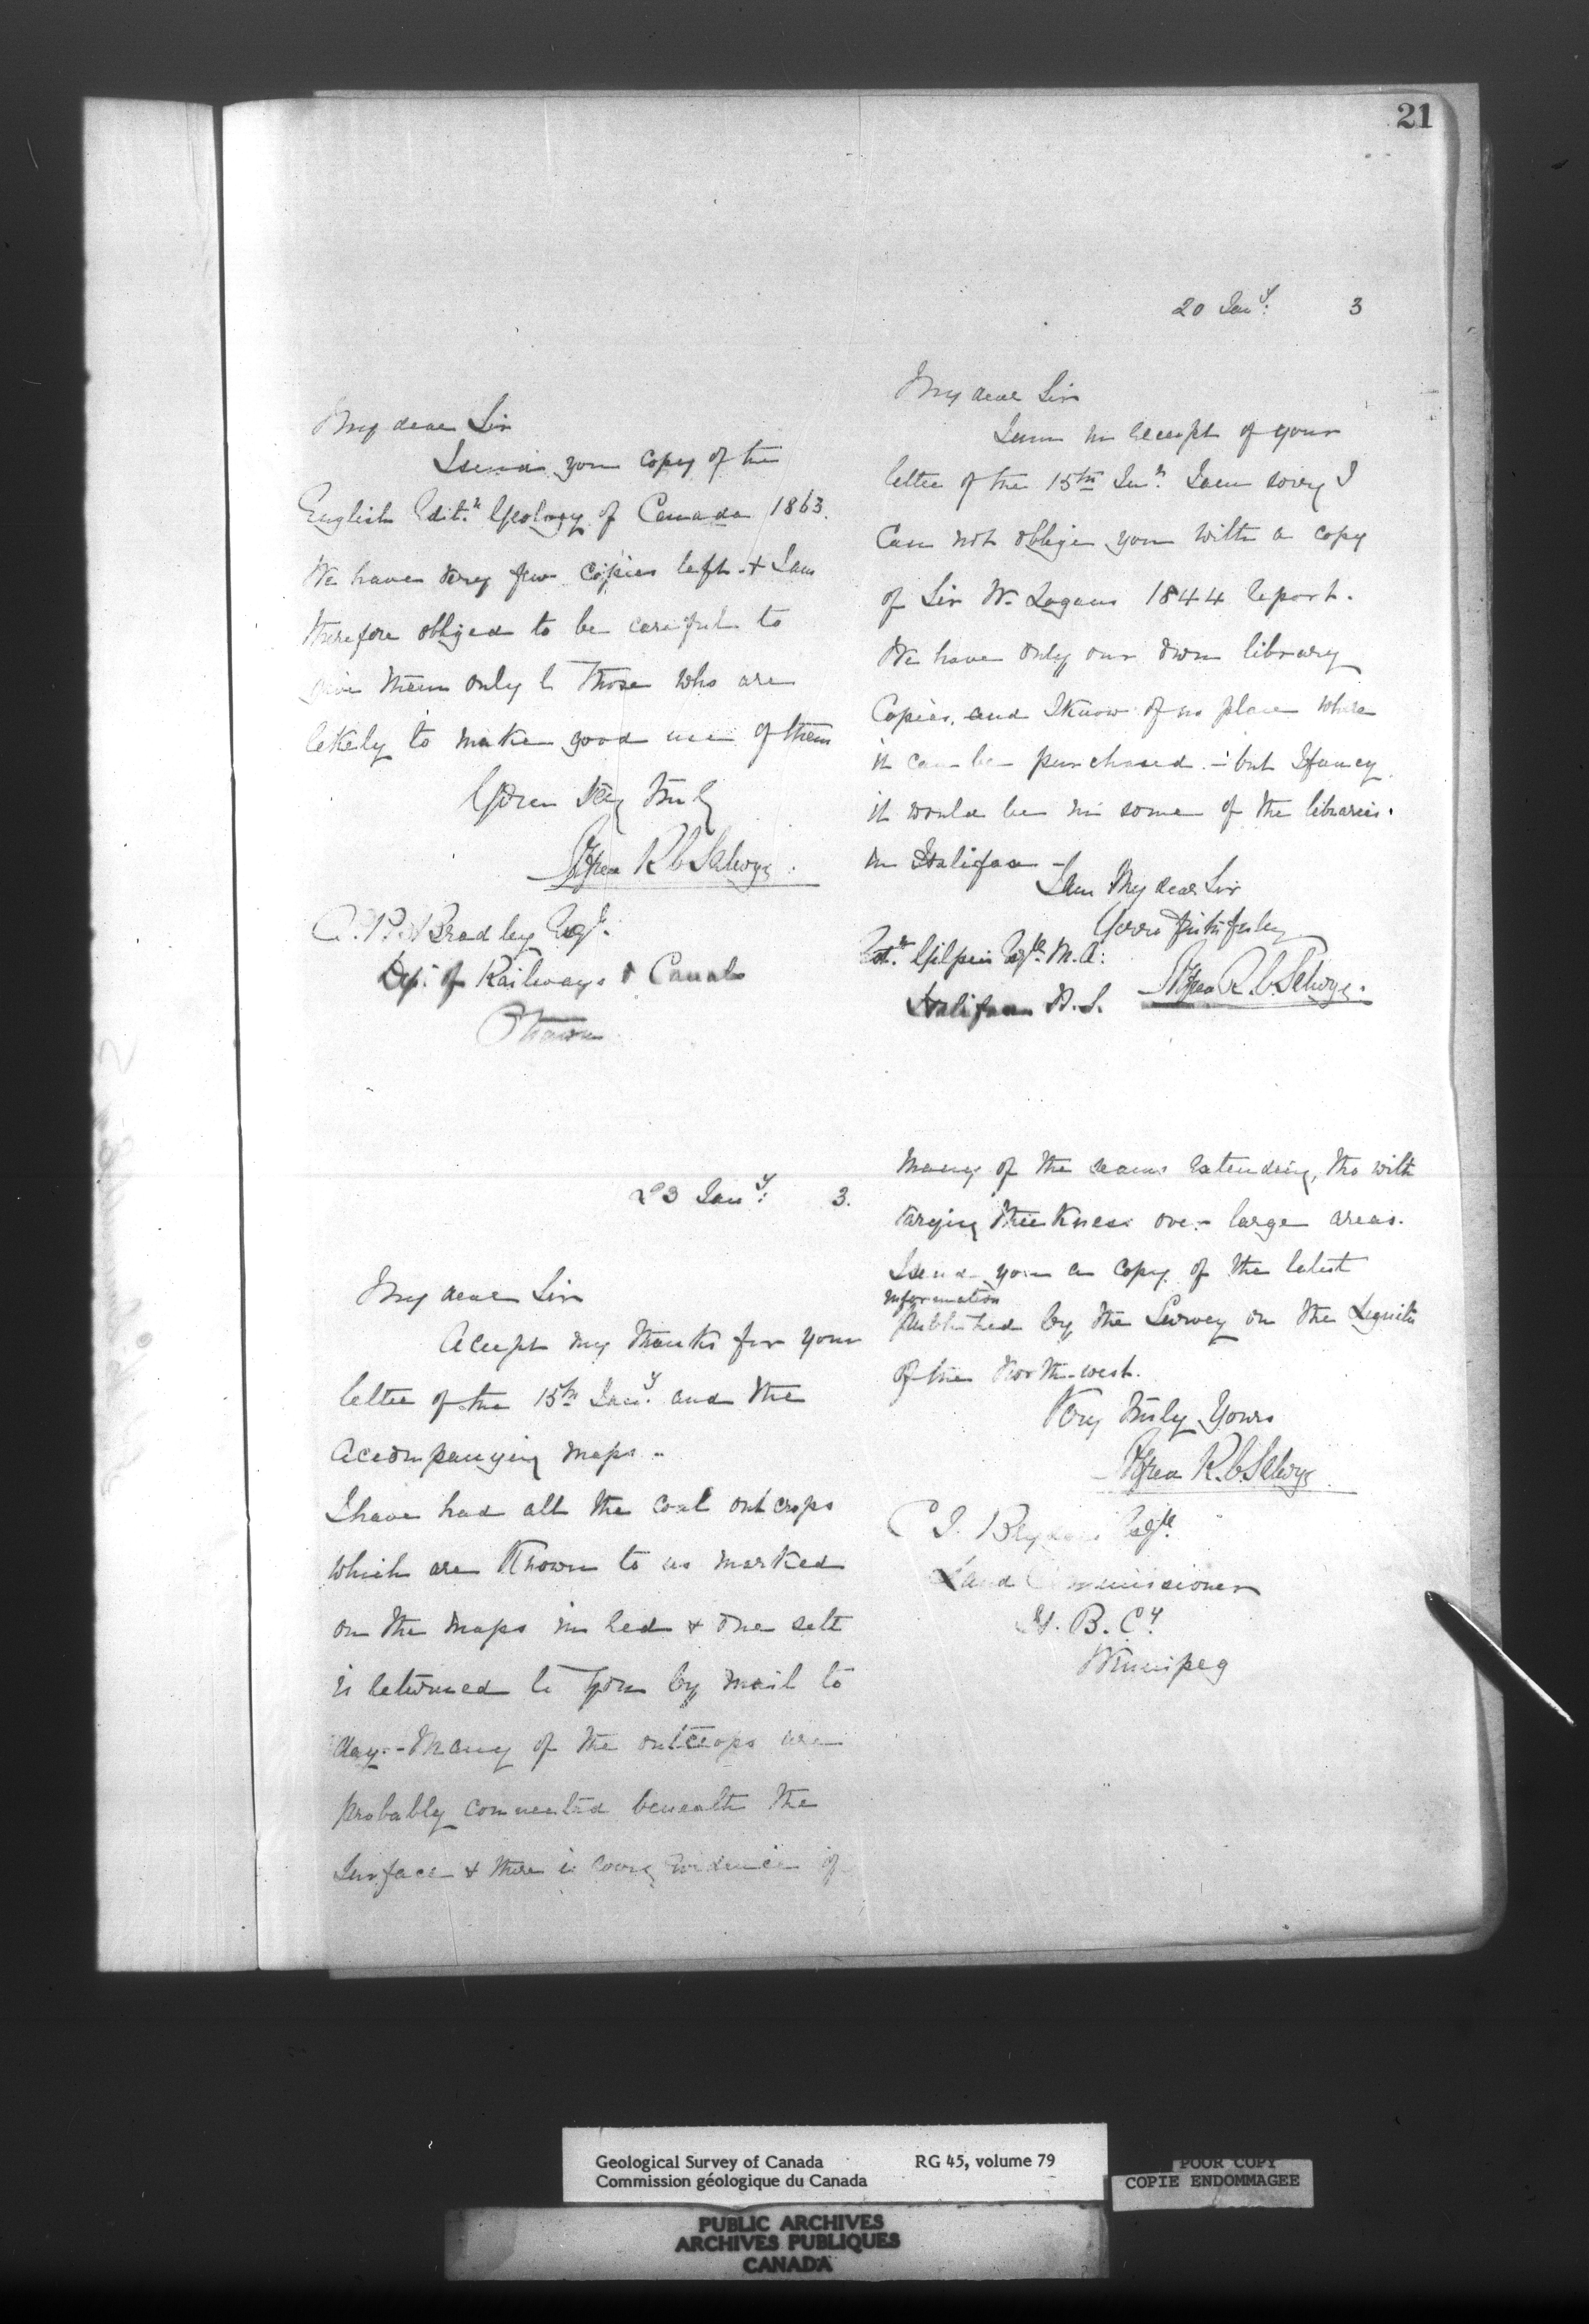 21
My dear Sir
I send you copy of the
English Edit.n Geology of Canada 1863.
We have very few copies left & I am
therefore obliged to be careful to
give them only to those who are
likely to make good use of them
Yours very truly
Alfred R C Selwyn.
A. P. Bradley Esq.
Dep. of Railways & Canals
Ottawa
20 Jan.y 3
My dear Sir
I am in receipt of your
letter of the 15th In.n I am sorry I
Can not oblige you with a copy
of Sir W. Logans 1844 report.
We have only our own library
Copies, and I know of no place where
it can be purchased - but I fancy
it would be in some of the libraries.
in Halifax -
I am My dear Sir
Yours faithfully
Gilpin Esqre. M.A.
Halifax N.S.
Alfred R. C. Selwyn.
23 Jan.y 3.
My dear Sir
Accept my thanks for your
letter of the 15th Jan.y and the
accompanying maps -
I have had all the coal outcrops
which are Known to us marked
on the maps in red & one sett
is returned to you by mail to
day. - Many of the outcrops are
probably connected beneath the
Surface & there is evidence of
many of the seams extending, tho with
varying thickness over large areas.
I send you a copy of the latest
information
published by the Survey on the Lignite
of the North-west.
Very truly Yours
Alfred R. C. Selwyn
C J. Brydges Esqre.
Land Commissioner
H. B. Cy.
Winnipeg
Geological Survey of Canada RG 45, volume 79
Commission géologique du Canada
POOR COPY
COPIE ENDOMMAGEE
PUBLIC ARCHIVES
ARCHIVES PUBLIQUES
CANADA